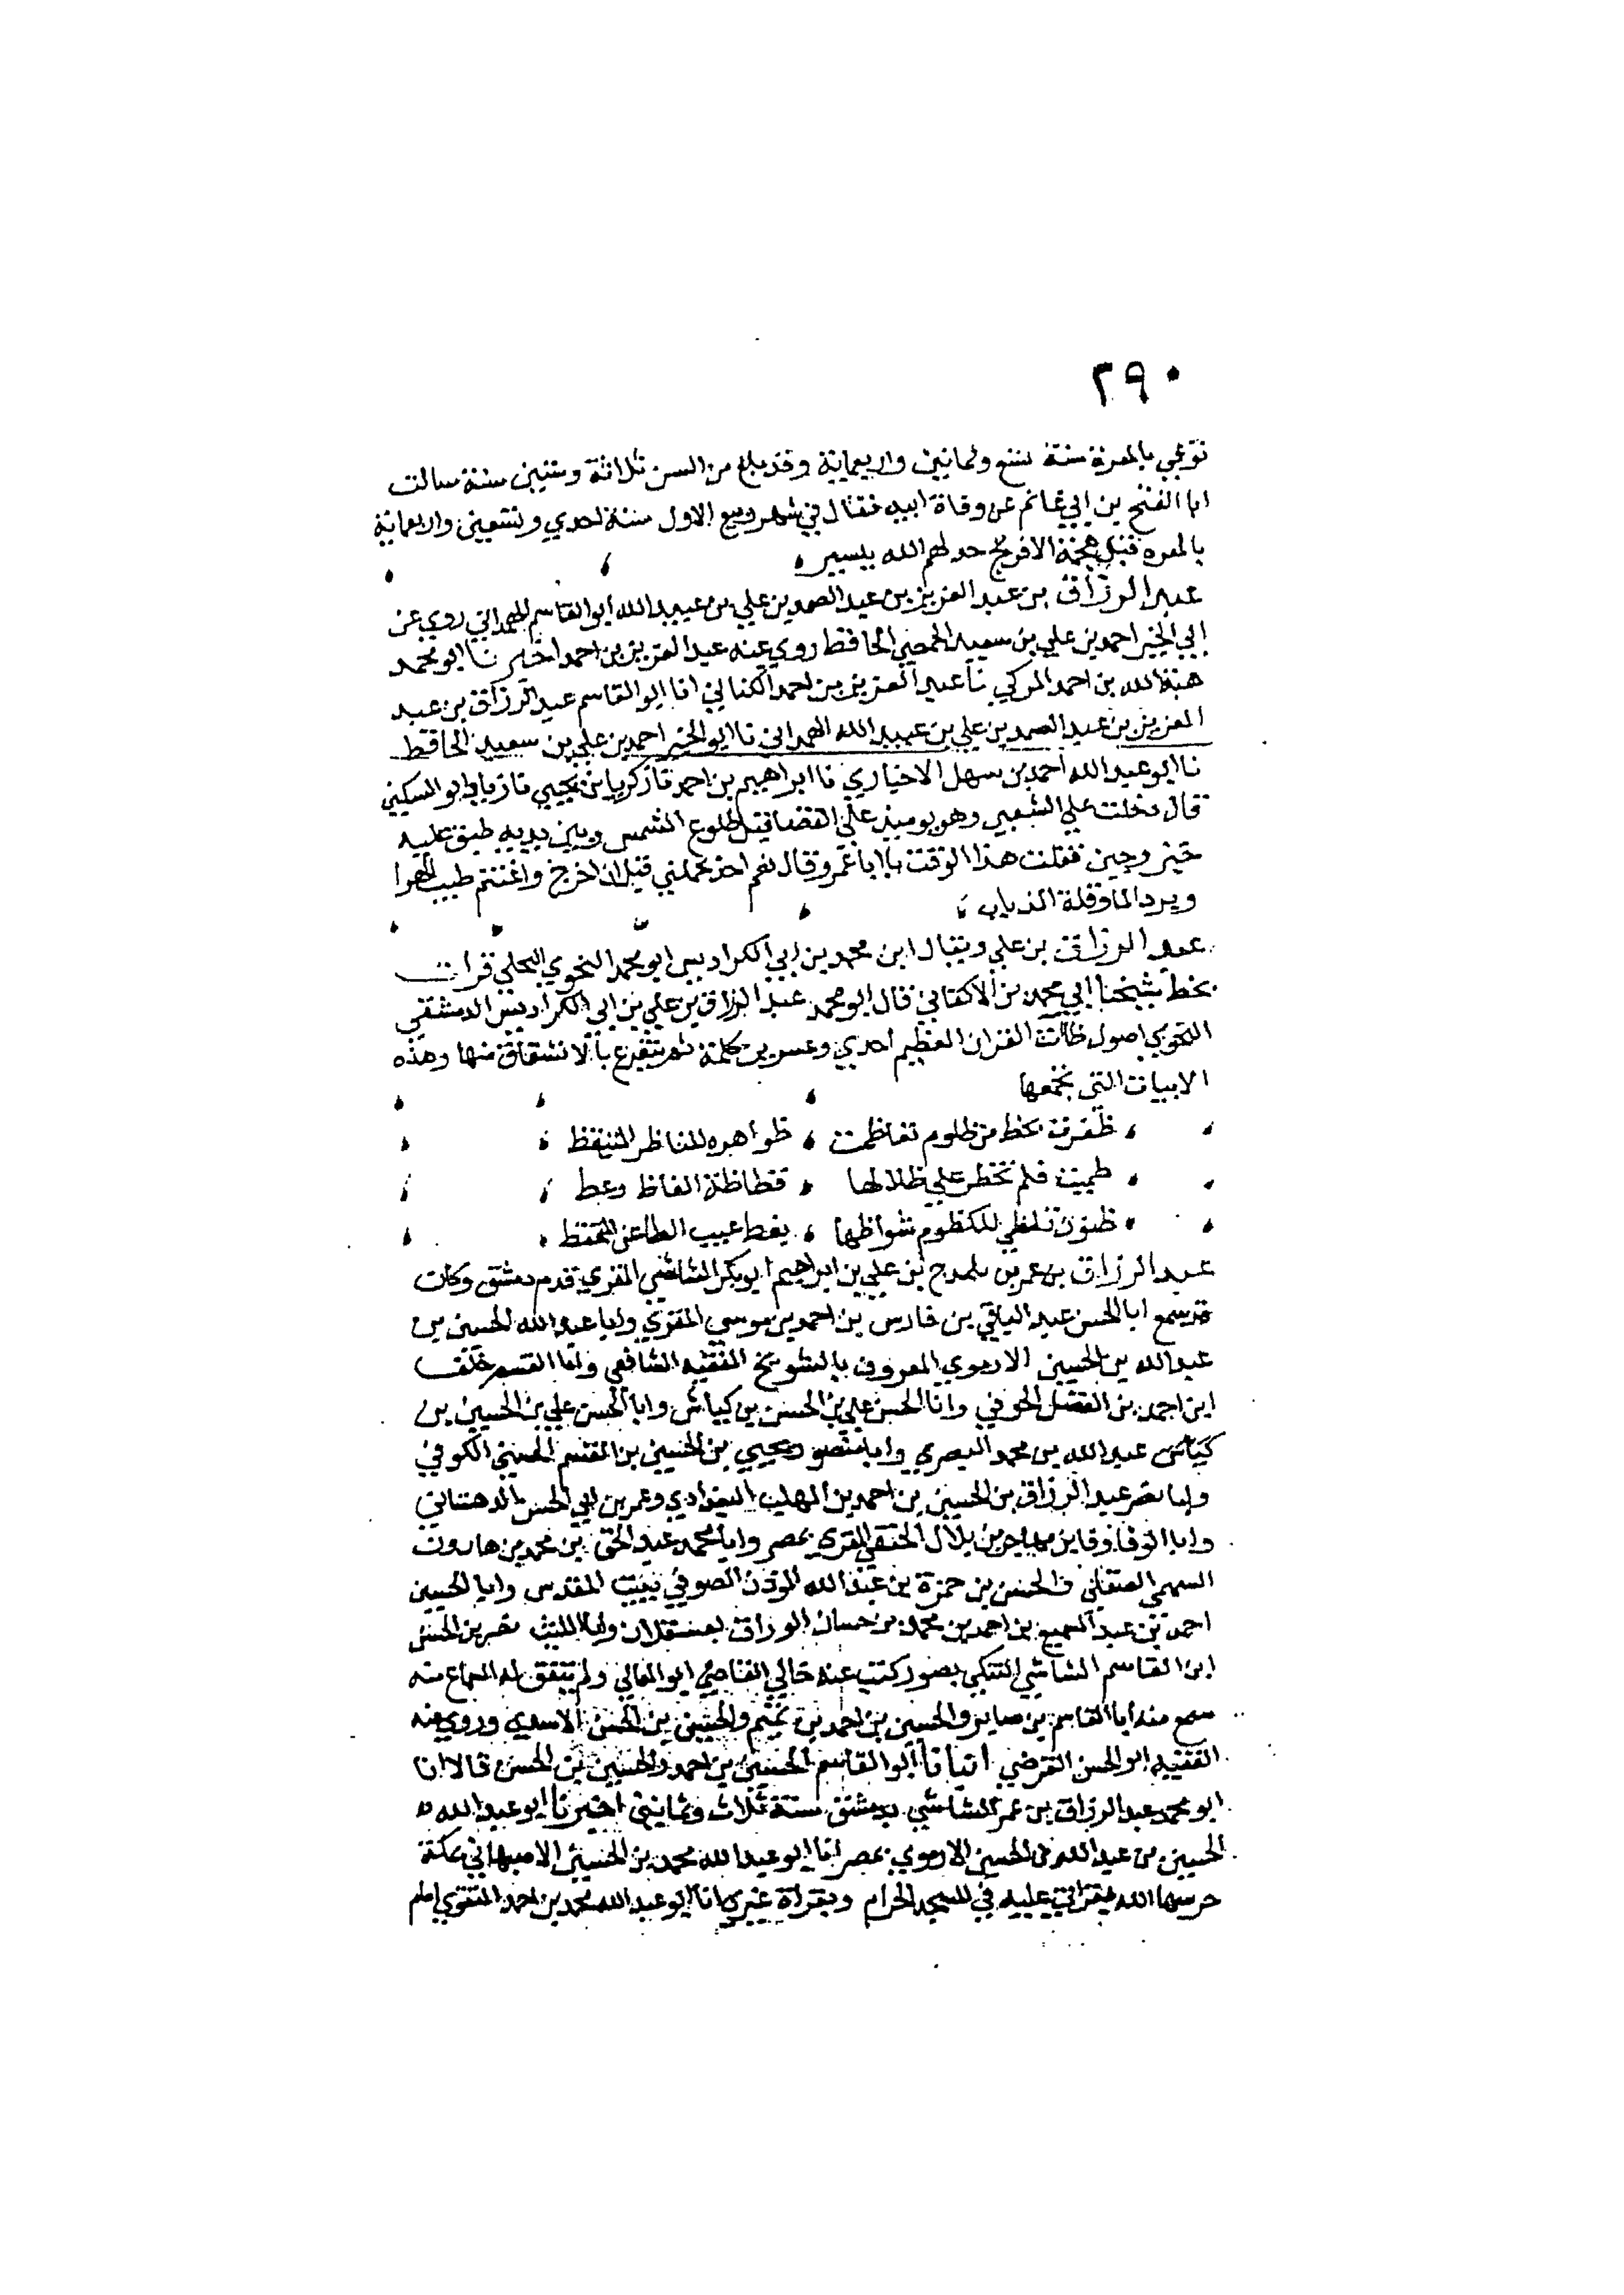 ٢٩٠
توفي بالمعرة سنة تسع وثمانين واربعماية وقد بلغ من السن ثلاثة وستين سنة سالت
ابا الفتح بن ابي غانم عن وفاة ابيه فقال في شهر ربيع الاول سنة احدي وتسعين واربعماية
بالمعره قبل هجمة الافرنج خذلهم الله بيسير
عبد الرزاق بن عبد العزيز بن عبد الصمد بن علي بن عبيد الله ابو القاسم الهمداني روي عن
ابي الخير احمد بن علي بن سعيد الحمصي الحافظ روي عنه عبد العزيز بن احمد اخبرنا ابو محمد
هبة الله بن احمد المزكي نا عبد العزيز بن احمد الكتاني انا ابو القاسم عبد الرزاق بن عبد
العزيز بن عبد الصمد بن علي بن عبيد الله الهمداني نا ابو الخير احمد بن علي بن سعيد الحافظ
نا ابو عبد الله احمد بن سهل الاخباري نا ابراهيم بن احمد نا زكريا بن يحيي نا ابو السكين
قال دخلت علي الشعبي وهو يوميذ علي القضا قبل طلوع الشمس وبين يديه طبق عليه
خبز وجبن فقلت هذا الوقت يا ابا عمرو قال نعم اخذ قبل ان اخرج واغتنم طيب الهوا
وبرد الما وقلة الذباب
عبد الرزاق بن علي ويقال ابن محمد بن ابي الكراديس ابو محمد النحوي قرات
بخط شيخنا ابي محمد بن الاكفاني قال ابو محمد عبد الرزاق بن علي بن ابي الكراديس الدمشقي
النحوي اصول ظاآت القران العظيم احدي وعسرين كلمة ثم تتفرع بالاشتقاق منها وهذه
الابيات التي تجمعها
ظفرت بحظ من ظلوم تعاظمت ظواهره للناظر المتيقظ
ظميت فلم تحظر علي ظلالها فظاظة الفاظ وعظ
ظنون تلظي للكظوم شواظها يغظ عيب الظاعن المتحفظ
عبد الرزاق بن عمر بن بلدج بن علي بن ابراهيم ابو بكر الشاشي المقري قدم دمشق وكان
قد سمع ابا الحسن عبد الباقي بن فارس بن احمد بن موسي المقري وابا عبد الله الحسين بن
عبد الله بن الحسين الارموي المعروف بالشويخ الفقيه الشافعي وابا القسم خلف
ابن احمد بن الفضل الحوفي وابا الحسن علي بن الحسن بن كياش وابا الحسن علي بن الحسين بن
كياس عبد الله بن محمد البصري وابا منصور يحيي بن الحسين بن القسم الحسيني الكوفي
وابا نصر عبد الرزاق بن الحسين بن احمد بن المهلب البغدادي وعمر بن ابي الحسن الدهستاني
وابا الوفا وفا بن مهاجر بن بلال الحنفي المقري بمصر وابا محمد عبد الحق بن محمد بن هارون
السهمي الصقلي والحسن بن حمزة بن عبد الله المؤذن الصوفي ببيت المقدس وابا الحسين
احمد بن عبد السميع بن احمد بن محمد بن حسان الوراق بعسقلان وابا الليث نصر بن الحسن
ابن القاسم الشاشي التنكتي بصور كتب عنه خالي القاضي ابو المعالي ولم يتفق له السماع منه
سمع منه ابا القاسم بن صابر والحسين بن احمد بن تميم والحسين بن الحسن الاسدي وروي عنه
الفقيه ابو الحسن الفرضي انبانا ابو القاسم الحسين بن احمد والحسين بن الحسن قالا انا
ابو محمد عبد الرزاق بن عمر الشاشي بدمشق سنة ثلاث وثمانين اخبرنا ابو عبد الله
الحسين بن عبد الله بن الحسين الارموي بمصر انا ابو عبد الله محمد بن الحسين الاصبهاني بمكة
حرسها الله بقراتي عليه في المسجد الحرام وبقراة غيري انا ابو عبد الله محمد بن احمد امام